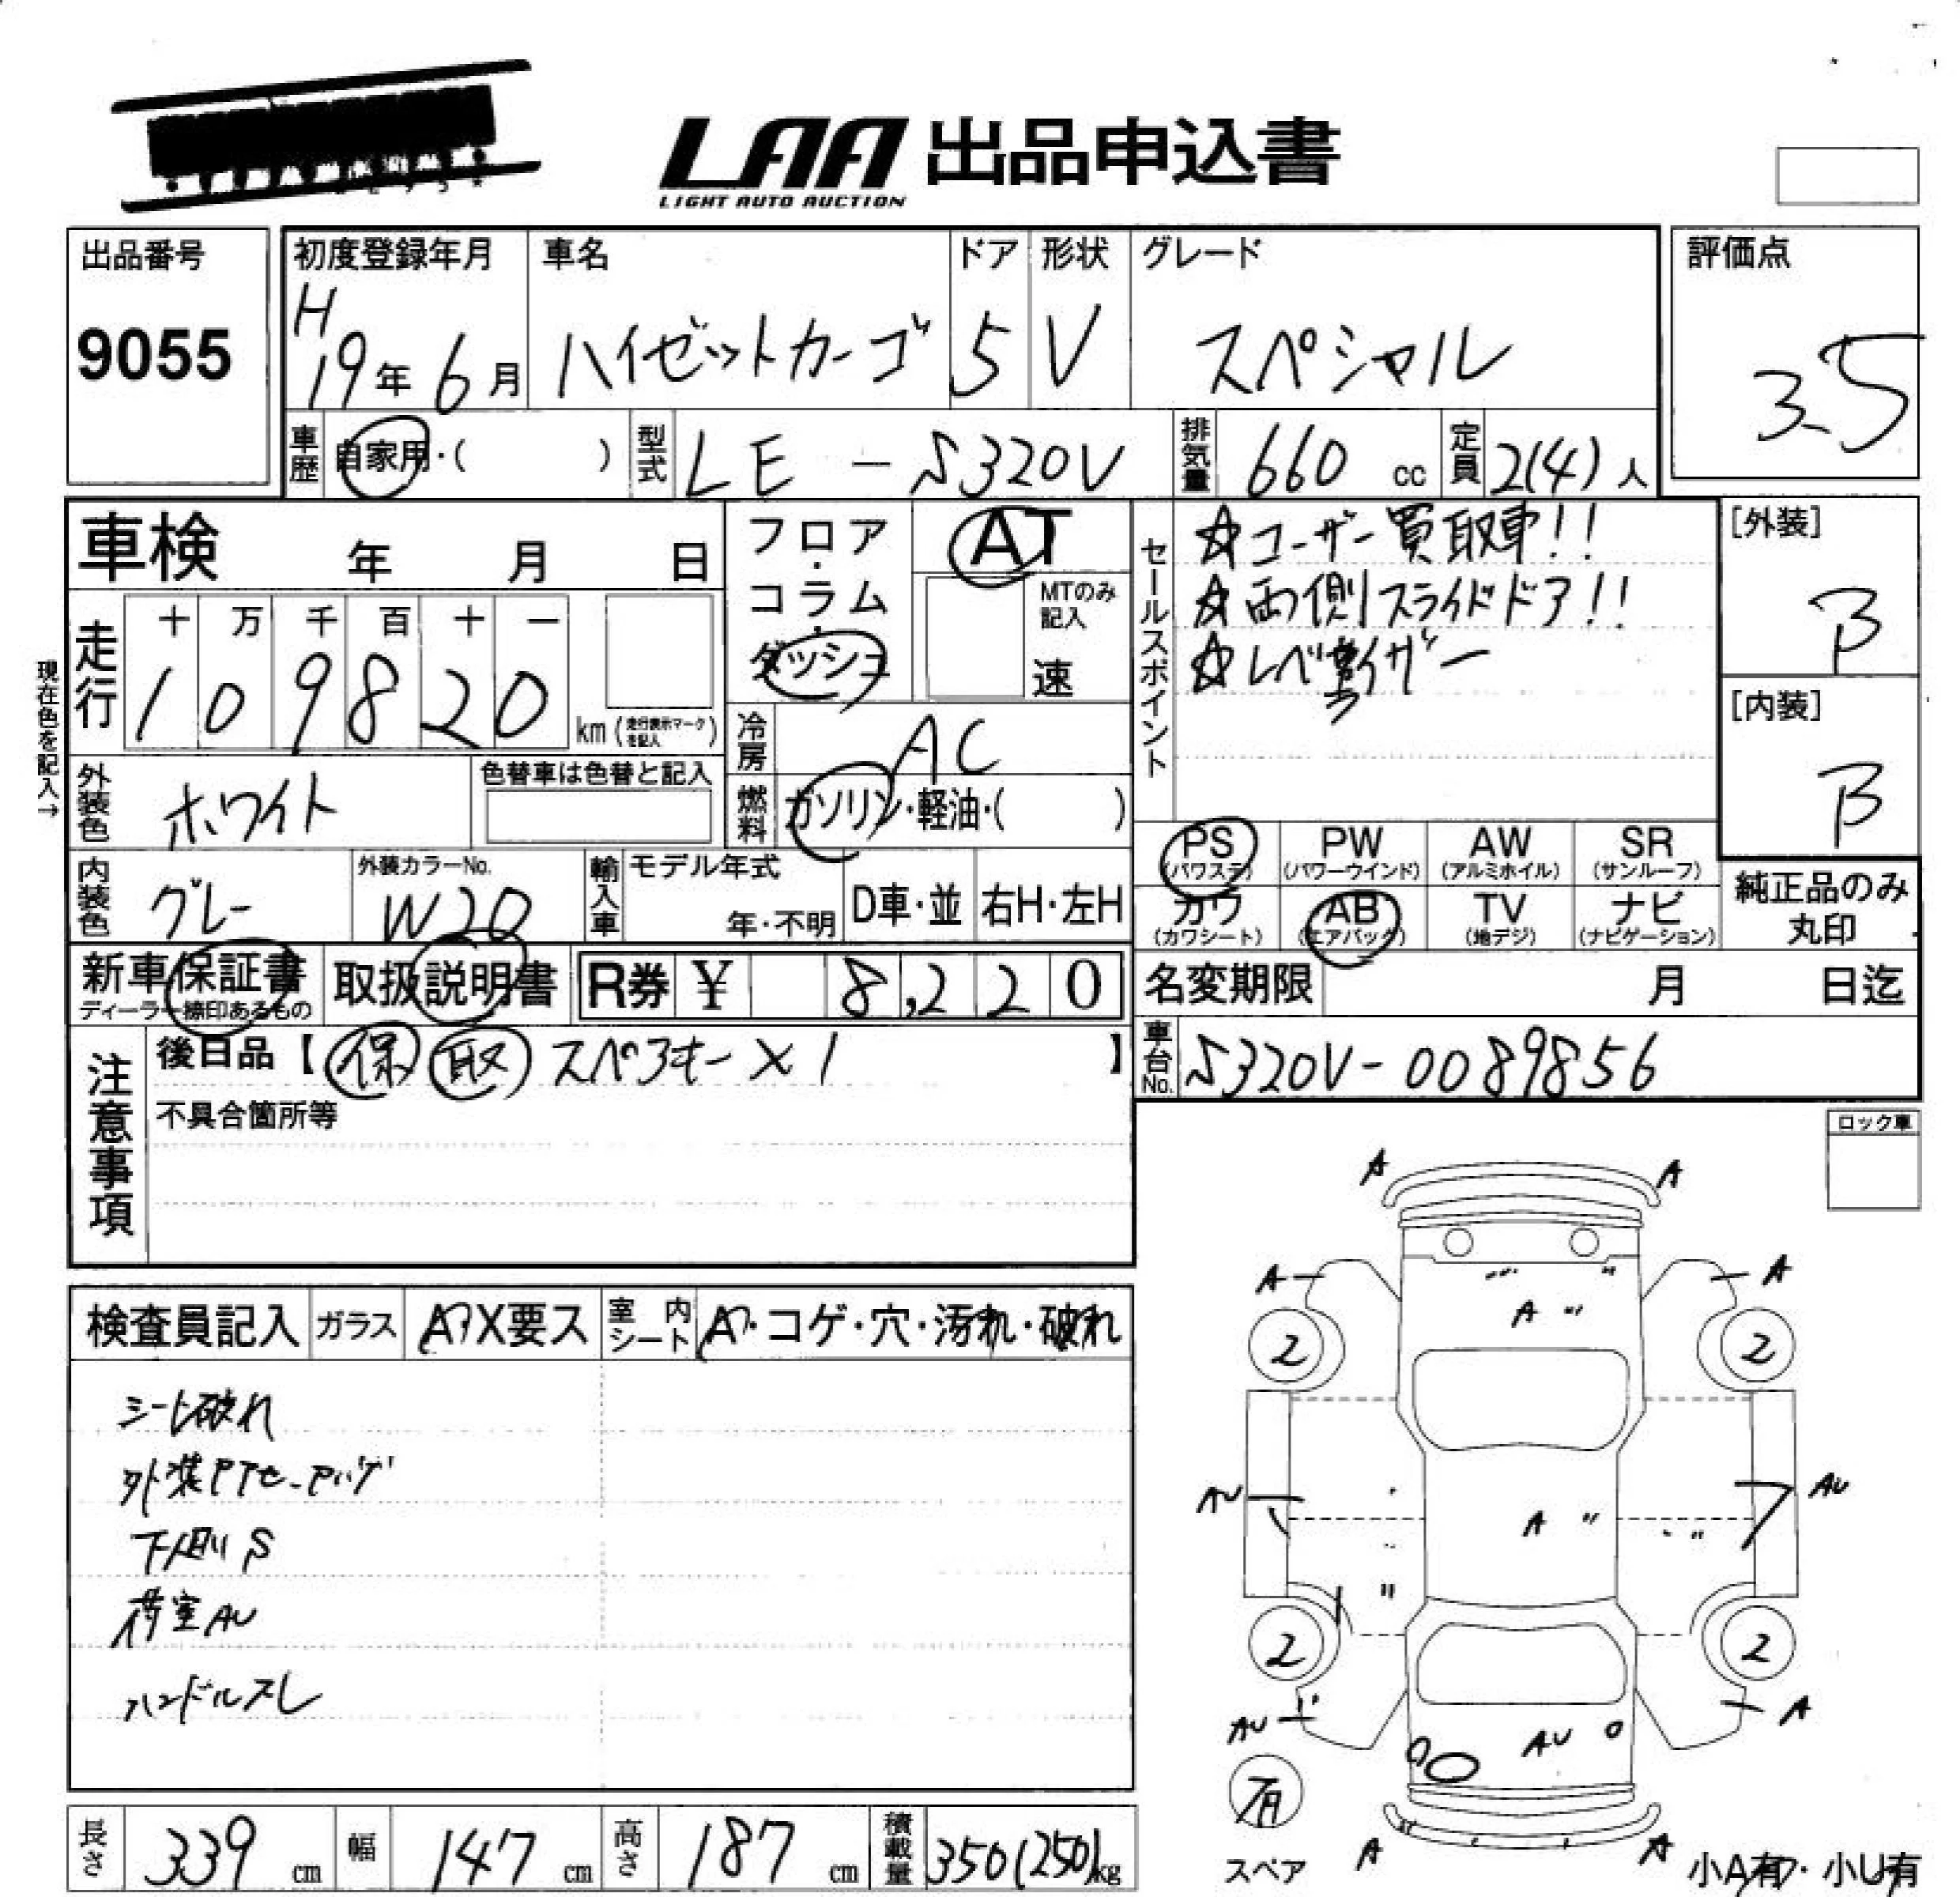 LAA 出品申込書
LIGHT AUTO AUCTION
出品番号
9055
初度登録年月
H
19年 6月
車名
ハイゼットカーゴ
ドア
5
形状
V
グレード
スペシャル
評価点
3.5
車歴 自家用・( )
型式 LE - S320V
排気量 660 cc
定員 2(4)人
車検 年 月 日
フロア・
コラム・
ダッシュ
AT
MTのみ
記入
速
走行
十 万 千 百 十 一
1 0 9 8 2 0
km(走行表示マークを記入)
現在色を記入→
冷房 AC
燃料 ガソリン・軽油・( )
外装色 ホワイト
色替車は色替と記入
内装色 グレー
外装カラーNo.
W20
輸入車
モデル年式
年・不明
D車・並
右H・左H
セールスポイント
☆ユーザー買取車!!
☆両側スライドドア!!
☆レベライザー
[外装]
B
[内装]
B
PS
(パワステ)
PW
(パワーウインド)
AW
(アルミホイル)
SR
(サンルーフ)
カワ
(カワシート)
AB
(エアバック)
TV
(地デジ)
ナビ
(ナビゲーション)
純正品のみ
丸印
新車保証書
ディーラー捺印あるもの
取扱説明書
R券 ¥ 8,220
名変期限 月 日迄
車台No. S320V-0089856
注意事項
後日品【 保 取 スペアキー×1 】
不具合箇所等
ロック車
検査員記入
ガラス
A?X要ス
室内シート
A?・コゲ・穴・汚れ・破れ
シート破れ
外装PTセ-
下廻りS
荷室AU
ハンドルスレ
A A
A A
A 〃
2 2
AU AU
A 〃
〃
2 2
AU A
AU
有
スペア
A A
小A有・小U有
長さ 339 cm
幅 147 cm
高さ 187 cm
積載量 350(250)kg